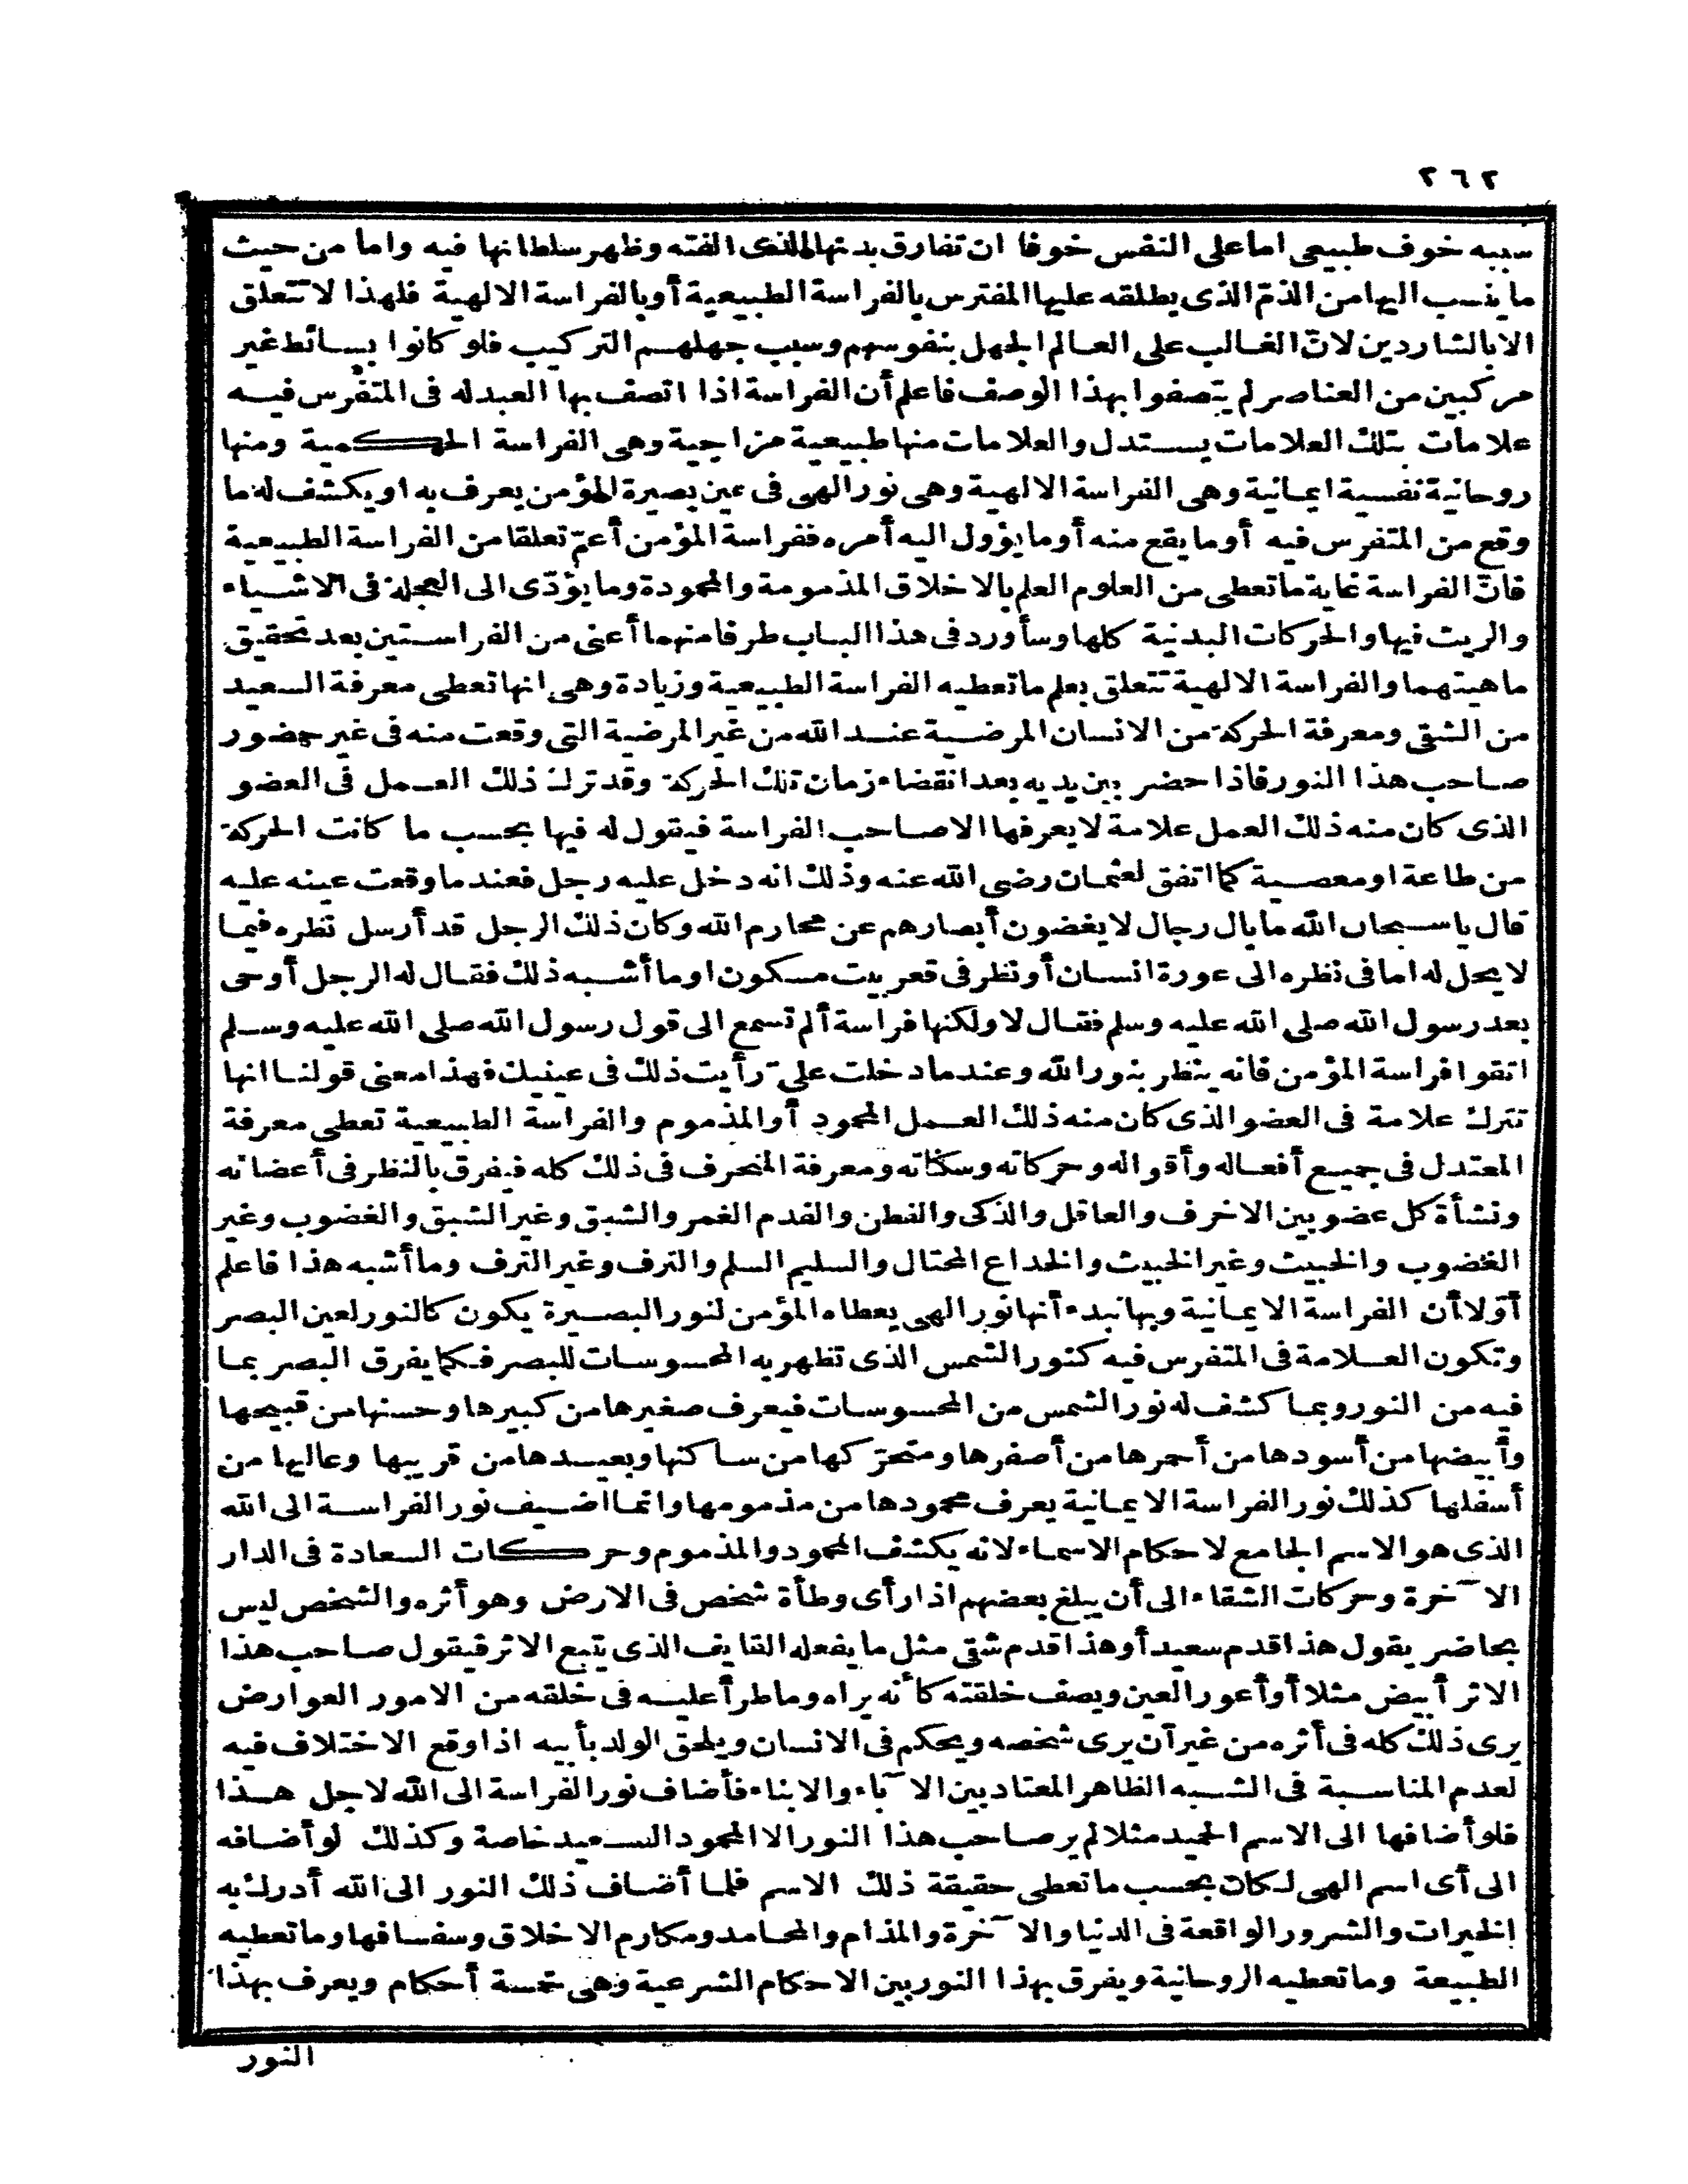 ٢٦٢
سببه خوف طبيعى اما على النفس خوفا ان تفارق بدنها الذى الفته وظهر سلطانها فيه واما من حيث
ما ينسب اليها من الذمّ الذى يطلقه عليها المفترس بالفراسة الطبيعية أو بالفراسة الالهية فلهذا لا تتعلق
الا بالشاردين لانّ الغالب على العالم الجهل بنفوسهم وسبب جهلهم التركيب فلو كانوا بسائط غير
مركبين من العناصر لم يتصفوا بهذا الوصف فاعلم أن الفراسة اذا اتصف بها العبد له فى المتفرّس فيه
علامات بتلك العلامات يستدل والعلامات منها طبيعية مزاجية وهى الفراسة الحكمية ومنها
روحانية نفسية ايمانية وهى الفراسة الالهية وهى نور الهى فى عين بصيرة المؤمن يعرف به او يكشف له ما
وقع من المتفرس فيه أو ما يقع منه أو ما يؤول اليه أمره ففراسة المؤمن أعمّ تعلقا من الفراسة الطبيعية
فانّ الفراسة غاية ما تعطى من العلوم العلم بالاخلاق المذمومة والمحمودة وما يؤدّى الى العجلة فى الاشياء
والريث فيها والحركات البدنية كلها وسأورد فى هذا الباب طرفا منهما أعنى من الفراستين بعد تحقيق
ماهيتهما والفراسة الالهية تتعلق بعلم ما تعطيه الفراسة الطبيعية وزيادة وهى انها تعطى معرفة السعيد
من الشقى ومعرفة الحركة من الانسان المرضية عند الله من غير المرضية التى وقعت منه فى غير حضور
صاحب هذا النور فاذا حضر بين يديه بعد انقضاء زمان تلك الحركة وقد ترك ذلك العمل فى العضو
الذى كان منه ذلك العمل علامة لا يعرفها الا صاحب الفراسة فيقول له فيها بحسب ما كانت الحركة
من طاعة او معصية كما اتفق لعثمان رضى الله عنه وذلك انه دخل عليه رجل فعند ما وقعت عينه عليه
قال يا سبحان الله ما بال رجال لا يغضون أبصارهم عن محارم الله وكان ذلك الرجل قد أرسل نظره فيما
لا يحل له اما فى نظره الى عورة انسان أو نظر فى قعر بيت مسكون او ما أشبه ذلك فقال له الرجل أوحى
بعد رسول الله صلى الله عليه وسلم فقال لا ولكنها فراسة ألم تسمع الى قول رسول الله صلى الله عليه وسلم
اتقوا فراسة المؤمن فانه ينظر بنور الله وعند ما دخلت علىّ رأيت ذلك فى عينيك فهذا معنى قولنا انها
تترك علامة فى العضو الذى كان منه ذلك العمل المحمود أو المذموم والفراسة الطبيعية تعطى معرفة
المعتدل فى جميع أفعاله وأقواله وحركاته وسكناته ومعرفة المنحرف فى ذلك كله فيفرق بالنظر فى أعضائه
ونشأة كل عضو بين الاخرف والعاقل والذكى والفطن والفدم الغمر والشبق وغير الشبق والغضوب وغير
الغضوب والخبيث وغير الخبيث والخداع المحتال والسليم السلم والترف وغير الترف وما أشبه هذا فاعلم
أوّلا أن الفراسة الايمانية وبها نبدء أنها نور الهى يعطاه المؤمن لنور البصيرة يكون كالنور لعين البصر
وتكون العلامة فى المتفرس فيه كنور الشمس الذى تظهر به المحسوسات للبصر فكما يفرق البصر بما
فيه من النور وبما كشف له نور الشمس من المحسوسات فيعرف صغيرها من كبيرها وحسنها من قبيحها
وأبيضها من أسودها من أحمرها من أصفرها ومتحرّكها من ساكنها وبعيدها من قريبها وعاليها من
أسفلها كذلك نور الفراسة الايمانية يعرف محمودها من مذمومها وانما اضيف نور الفراسة الى الله
الذى هو الاسم الجامع لاحكام الاسماء لانه يكشف المحمود والمذموم وحركات السعادة فى الدار
الآخرة وحركات الشقاء الى أن يبلغ بعضهم اذا رأى وطأة شخص فى الارض وهو أثره والشخص ليس
بحاضر يقول هذا قدم سعيد أو هذا قدم شقى مثل ما يفعله القايف الذى يتبع الاثر فيقول صاحب هذا
الاثر أبيض مثلا أو أعور العين ويصف خلقته كأنه يراه وما طرأ عليه فى خلقه من الامور العوارض
يرى ذلك كله فى أثره من غير أن يرى شخصه ويحكم فى الانسان ويلحق الولد بأبيه اذا وقع الاختلاف فيه
لعدم المناسبة فى الشبه الظاهر المعتاد بين الآباء والابناء فأضاف نور الفراسة الى الله لاجل هذا
فلو أضافها الى الاسم الحميد مثلا لم ير صاحب هذا النور الا المحمود السعيد خاصة وكذلك لو أضافه
الى أى اسم الهى لكان بحسب ما تعطى حقيقة ذلك الاسم فلما أضاف ذلك النور الى الله أدرك به
الخيرات والشرور الواقعة فى الدنيا والآخرة والمذام والمحامد ومكارم الاخلاق وسفسافها وما تعطيه
الطبيعة وما تعطيه الروحانية ويفرق بهذا النور بين الاحكام الشرعية وهى خمسة أحكام ويعرف بهذا
النور